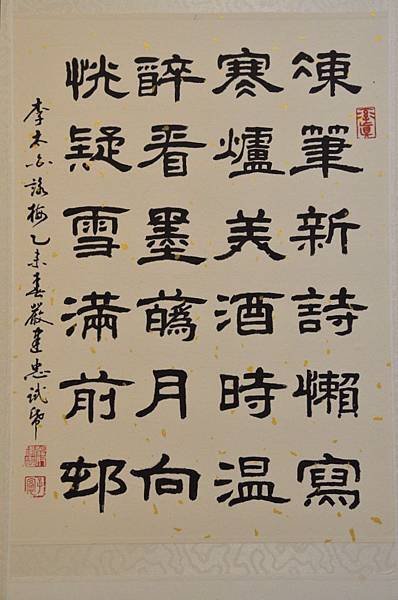 凍筆新詩懶寫
寒爐美酒時溫
醉看墨蘤月向
恍疑雪滿前邨
李太白詠梅乙未春嚴建忠試